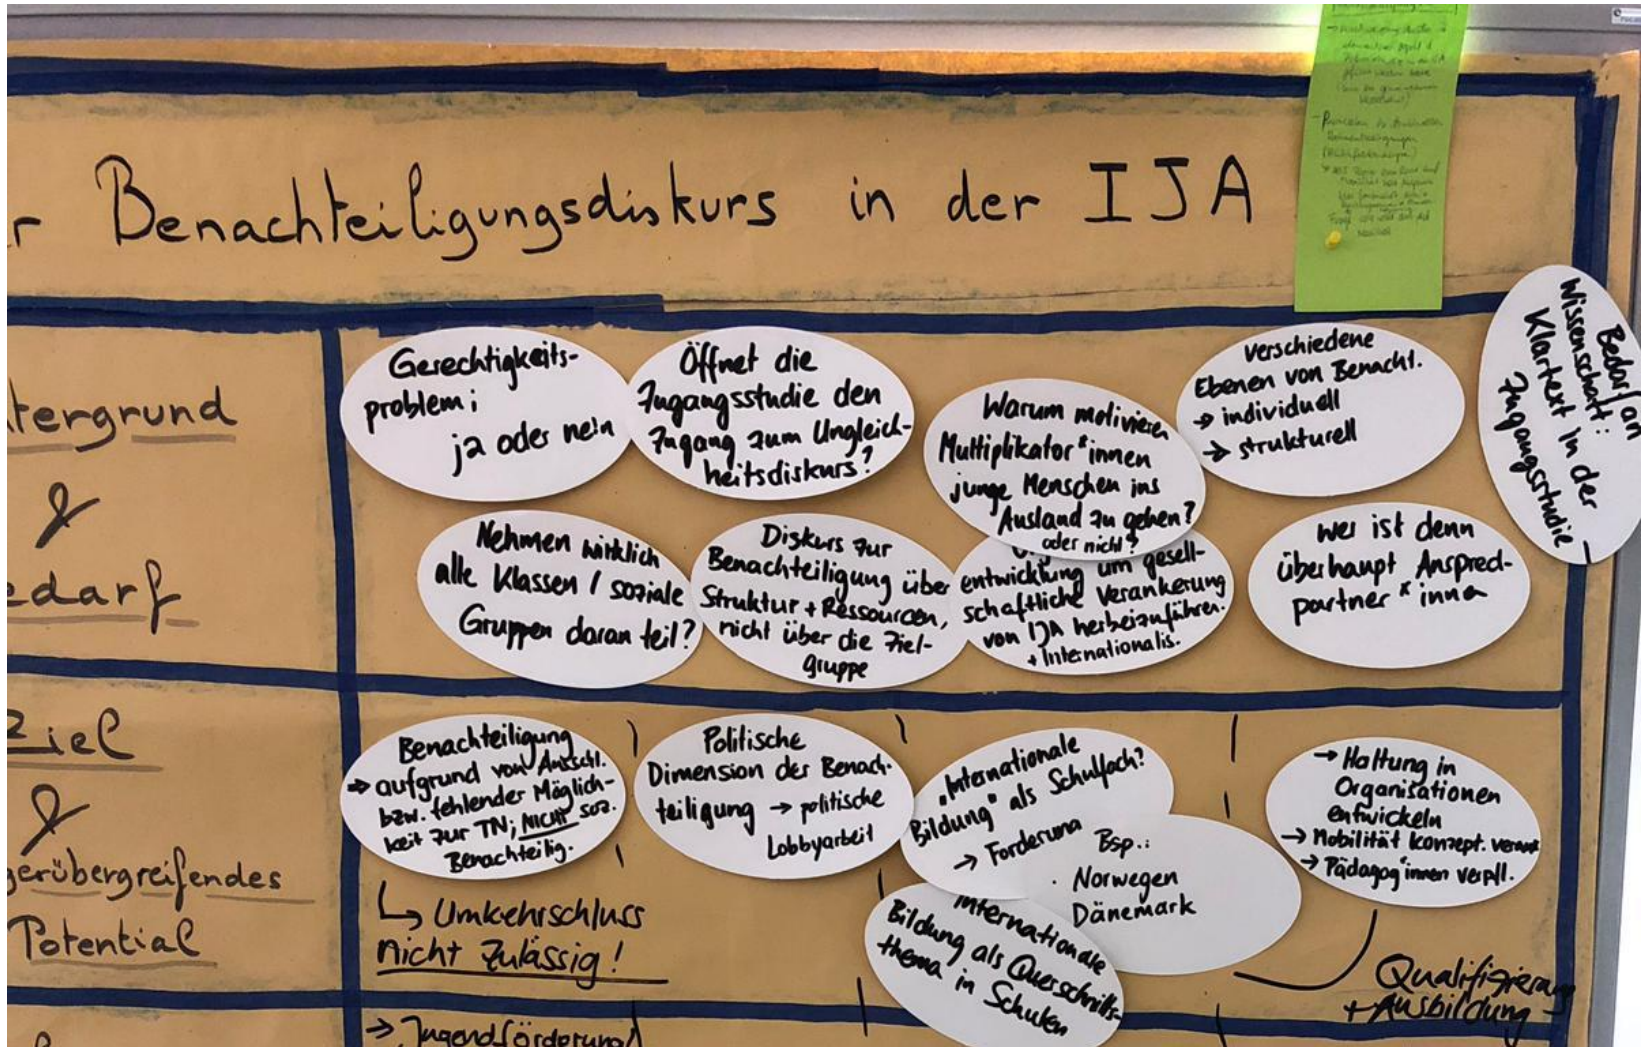 r Benachteiligungsdiskurs in der IJA
tergrund
&
edarf
Gerechtigkeits-
problem;
ja oder nein
Öffnet die
Zugangsstudie den
Zugang zum Ungleich-
heitsdiskurs?
Warum motivieren
Multiplikator*innen
junge Menschen ins
Ausland zu gehen?
oder nicht?
verschiedene
Ebenen von Benacht.
→ individuell
→ strukturell
Bedarf an
Wissenschaft:
Klartext in der
Zugangsstudie
Nehmen wirklich
alle Klassen / soziale
Gruppen daran teil?
Diskurs zur
Benachteiligung über
Struktur + Ressourcen,
nicht über die Ziel-
gruppe
entwicklung um gesell-
schaftliche Verankerung
von IJA herbeizuführen.
+ Internationalis.
Wer ist denn
überhaupt Anspred-
partner*innen
Ziel
&
gerübergreifendes
Potential
Benachteiligung
→ aufgrund von Ausschl.
bzw. fehlender Möglich-
keit zur TN; NICHT soz.
Benachteilig.
↳ Umkehrschluss
nicht zulässig!
Politische
Dimension der Benach-
teiligung → politische
Lobbyarbeit
"Internationale
Bildung" als Schulfach?
→ Forderung
Bsp.:
· Norwegen
Dänemark
Internationale
Bildung als Querschnitts-
thema in Schulen
→ Haltung in
Organisationen
entwickeln
→ Mobilität konzept. verank
→ Pädagog*innen verpfl.
Qualifizierung
+ Ausbildung
→ Jugendförderung